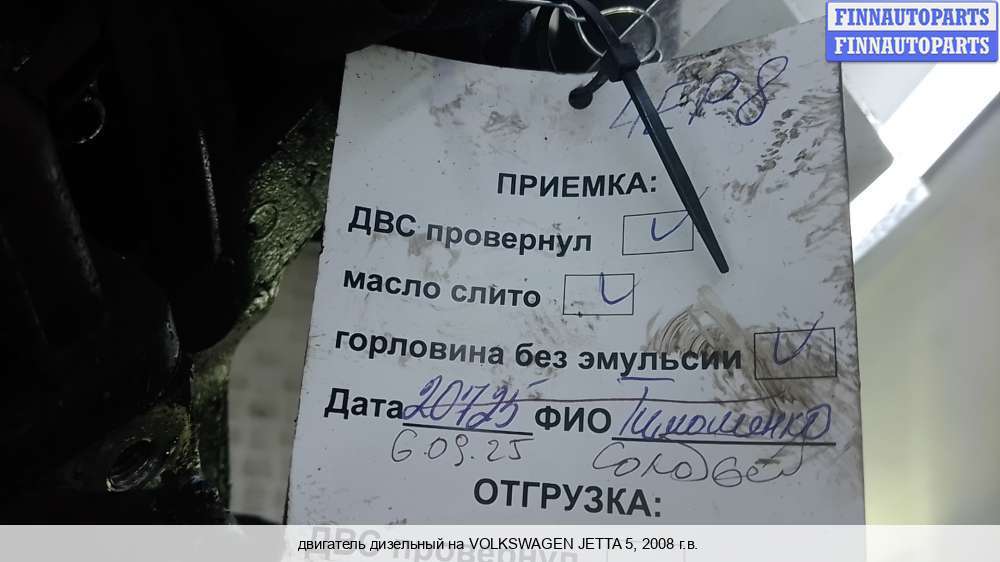 FINNAUTOPARTS
FINNAUTOPARTS
ПРИЕМКА:
ДВС провернул
масло слито
горловина без эмульсии
Дата 20725 ФИО Тимошенко
6.09.25 Соловей
ОТГРУЗКА:
ДВС провернул
двигатель дизельный на VOLKSWAGEN JETTA 5, 2008 г.в.